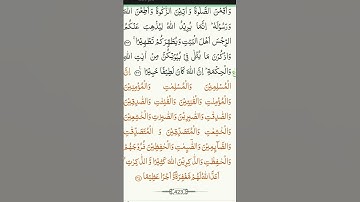 وَاَقِمْنَ الصَّلٰوةَ وَاٰتِيْنَ الزَّكٰوةَ وَاَطِعْنَ اللّٰهَ
وَرَسُوْلَهٗ ؕ اِنَّمَا يُرِيْدُ اللّٰهُ لِيُذْهِبَ عَنْكُمُ
الرِّجْسَ اَهْلَ الْبَيْتِ وَيُطَهِّرَكُمْ تَطْهِيْرًا ۚ
وَاذْكُرْنَ مَا يُتْلٰى فِيْ بُيُوْتِكُنَّ مِنْ اٰيٰتِ اللّٰهِ
وَالْحِكْمَةِ ؕ اِنَّ اللّٰهَ كَانَ لَطِيْفًا خَبِيْرًا اِنَّ
الْمُسْلِمِيْنَ وَالْمُسْلِمٰتِ وَالْمُؤْمِنِيْنَ
وَالْمُؤْمِنٰتِ وَالْقٰنِتِيْنَ وَالْقٰنِتٰتِ وَالصّٰدِقِيْنَ
وَالصّٰدِقٰتِ وَالصّٰبِرِيْنَ وَالصّٰبِرٰتِ وَالْخٰشِعِيْنَ
وَالْخٰشِعٰتِ وَالْمُتَصَدِّقِيْنَ وَ الْمُتَصَدِّقٰتِ
وَالصَّآئِمِيْنَ وَالصّٰٓئِمٰتِ وَالْحٰفِظِيْنَ فُرُوْجَهُمْ
وَالْحٰفِظٰتِ وَالذّٰكِرِيْنَ اللّٰهَ كَثِيْرًا وَّ الذّٰكِرٰتِ ۙ
اَعَدَّ اللّٰهُ لَهُمْ مَّغْفِرَةً وَّ اَجْرًا عَظِيْمًا
423